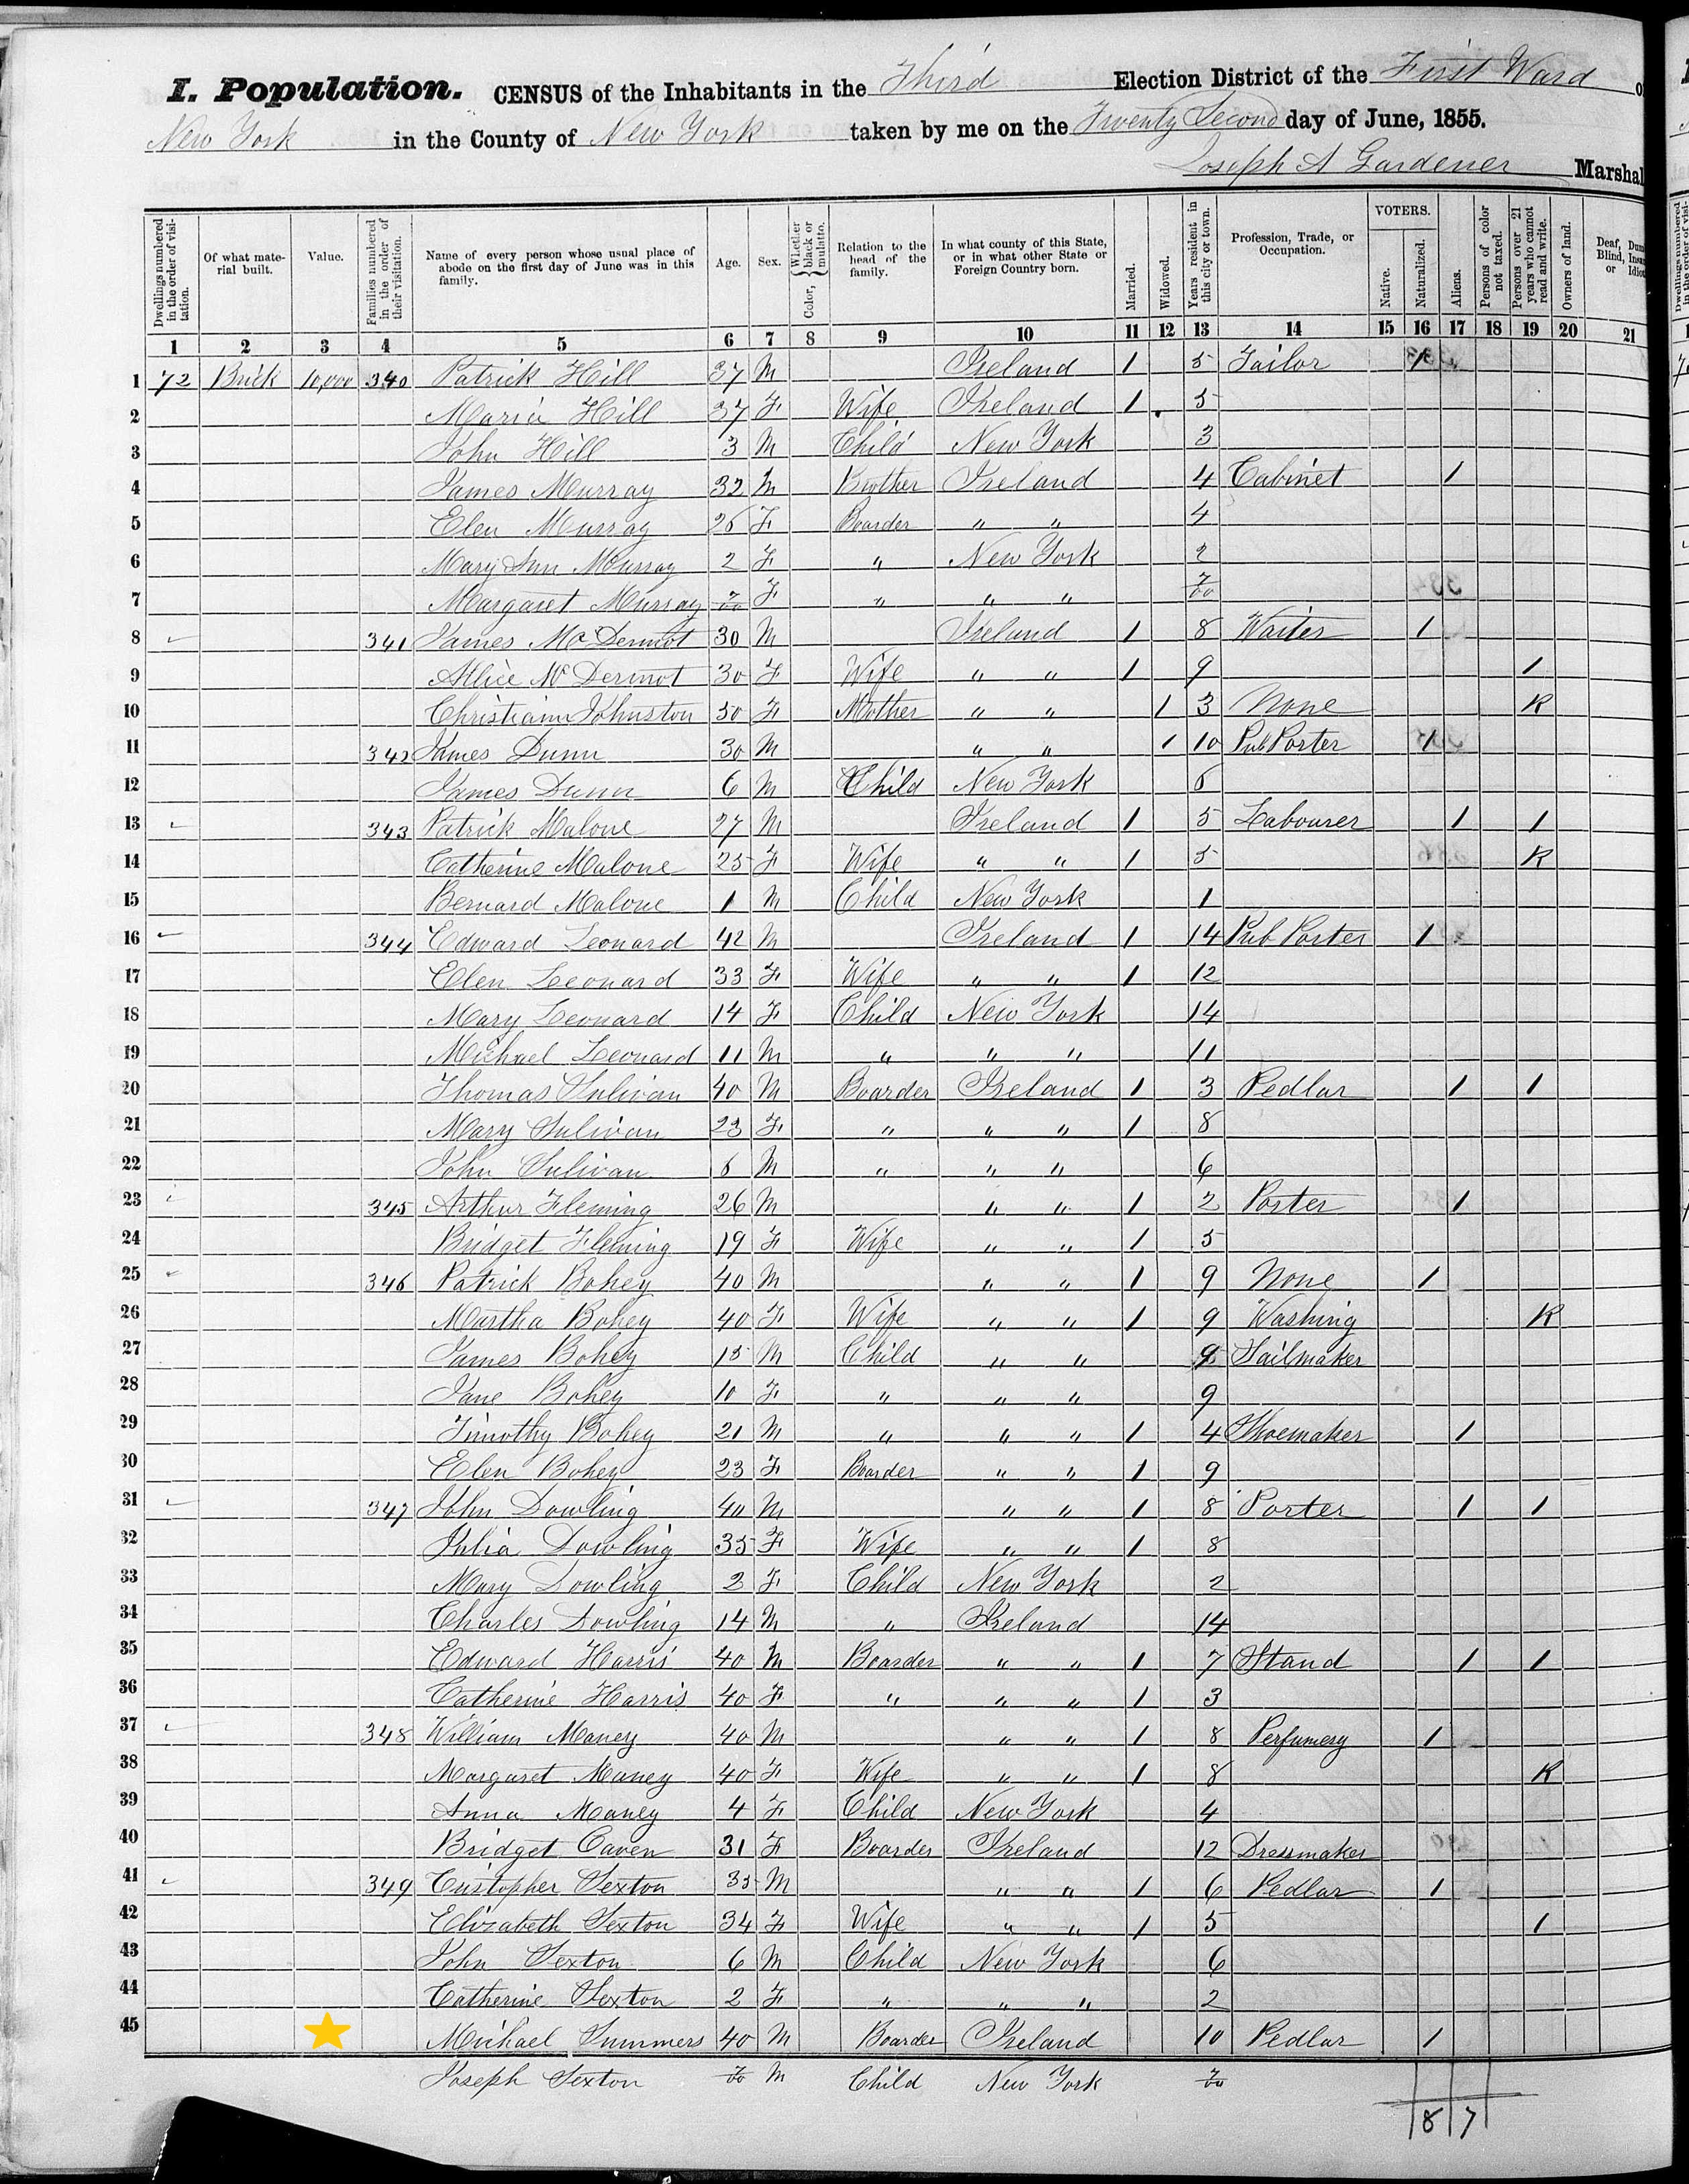 I. Population. CENSUS of the Inhabitants in the Third Election District of the First Ward of
New York in the County of New York taken by me on the Twenty Second day of June, 1855.
Joseph A Gardener Marshal
Dwellings numbered in the order of visitation. Of what material built. Value. Families numbered in the order of their visitation. Name of every person whose usual place of abode on the first day of June was in this family. Age. Sex. Color, { Whether black or mulatto. Relation to the head of the family. In what county of this State, or in what other State or Foreign Country born. Married. Widowed. Years resident in this city or town. Profession, Trade, or Occupation. VOTERS. Native. Naturalized. Aliens. Persons of color not taxed. Persons over 21 years who cannot read and write. Owners of land. Deaf, Blind, or
1 2 3 4 5 6 7 8 9 10 11 12 13 14 15 16 17 18 19 20 21
1 72 Brick 10,000 340 Patrick Hill 37 M Ireland 1 5 Tailor 1
2 Maria Hill 37 F Wife Ireland 1 5
3 John Hill 3 M Child New York 3
4 James Murray 32 M Brother Ireland 4 Cabinet 1
5 Elen Murray 26 F Boarder " " 4
6 Mary Ann Murray 2 F " New York 2
7 Margaret Murray F " " "
8 341 James McDermot 30 M Ireland 1 8 Waiter 1
9 Allice McDermot 30 F Wife " " 1 9 1
10 Christiann Johnston 50 F Mother " " 1 3 None R
11 342 James Dunn 30 M " " 1 10 Pub Porter 1
12 James Dunn 6 M Child New York 6
13 343 Patrick Malone 27 M Ireland 1 5 Labourer 1 1
14 Catherine Malone 25 F Wife " " 1 5 R
15 Bernard Malone 1 M Child New York 1
16 344 Edward Leonard 42 M Ireland 1 14 Pub Porter 1
17 Elen Leonard 33 F Wife " " 1 12
18 Mary Leonard 14 F Child New York 14
19 Michael Leonard 11 M " " " 11
20 Thomas Sulivan 40 M Boarder Ireland 1 3 Pedlar 1 1
21 Mary Sulivan 23 F " " " 1 8
22 John Sulivan 6 M " " " 6
23 345 Arthur Fleming 26 M " " 1 2 Porter 1
24 Bridget Fleming 19 F Wife " " 1 5
25 346 Patrick Bohey 40 M " " 1 9 None 1
26 Martha Bohey 40 F Wife " " 1 9 Washing R
27 James Bohey 15 M Child " " 9 Sailmaker
28 Jane Bohey 10 F " " " 9
29 Timothy Bohey 21 M " " " 1 4 Shoemaker 1
30 Elen Bohey 23 F Boarder " " 1 9
31 347 John Dowling 40 M " " 1 8 Porter 1 1
32 Julia Dowling 35 F Wife " " 1 8
33 Mary Dowling 2 F Child New York 2
34 Charles Dowling 14 M " Ireland 14
35 Edward Harris 40 M Boarder " " 1 7 Stand 1 1
36 Catherine Harris 40 F " " " 1 3
37 348 William Maney 40 M " " 1 8 Perfumery 1
38 Margaret Maney 40 F Wife " " 1 8 R
39 Anna Maney 4 F Child New York 4
40 Bridget Caven 31 F Boarder Ireland 12 Dressmaker
41 349 Cristopher Sexton 35 M " " 1 6 Pedlar 1
42 Elizabeth Sexton 34 F Wife " " 1 5 1
43 John Sexton 6 M Child New York 6
44 Catherine Sexton 2 F " " " 2
45 Michael Summers 40 M Boarder Ireland 10 Pedlar 1
Joseph Sexton M Child New York
8 7